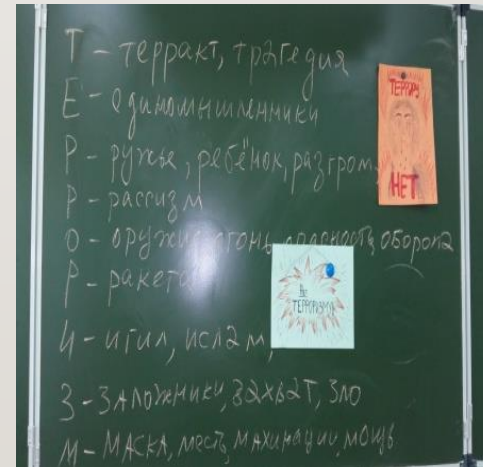 Т - терракт, трагедия
Е - единомышленники
Р - ружьё, ребёнок, разгром,
Р - рассизм
О - оружие, огонь, опасность, оборона
Р - ракета
И - игил, ислам,
З - заложники, захват, зло
М - маска, месть, махинации, мощь
ТЕРРОРУ
НЕТ
ТЕРРОРИЗМУ